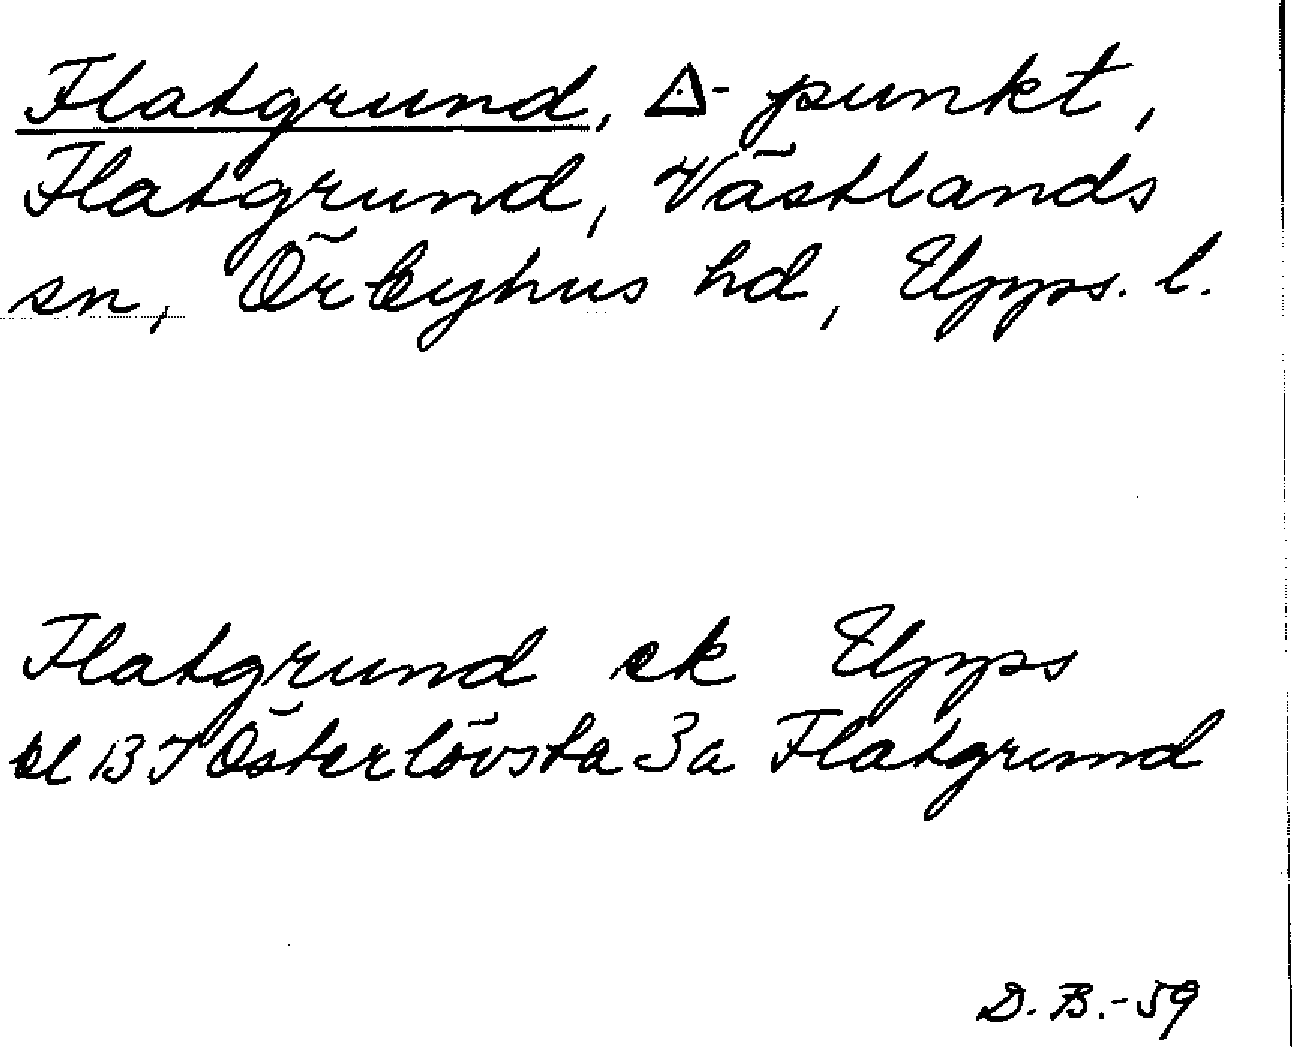 Flatgrund, △-punkt,
Flatgrund, Västlands
sn, Örbyhus hd, Upps. l.
Flatgrund ek Upps
bl 137 Österlövsta 3a Flatgrund
D. B.-59